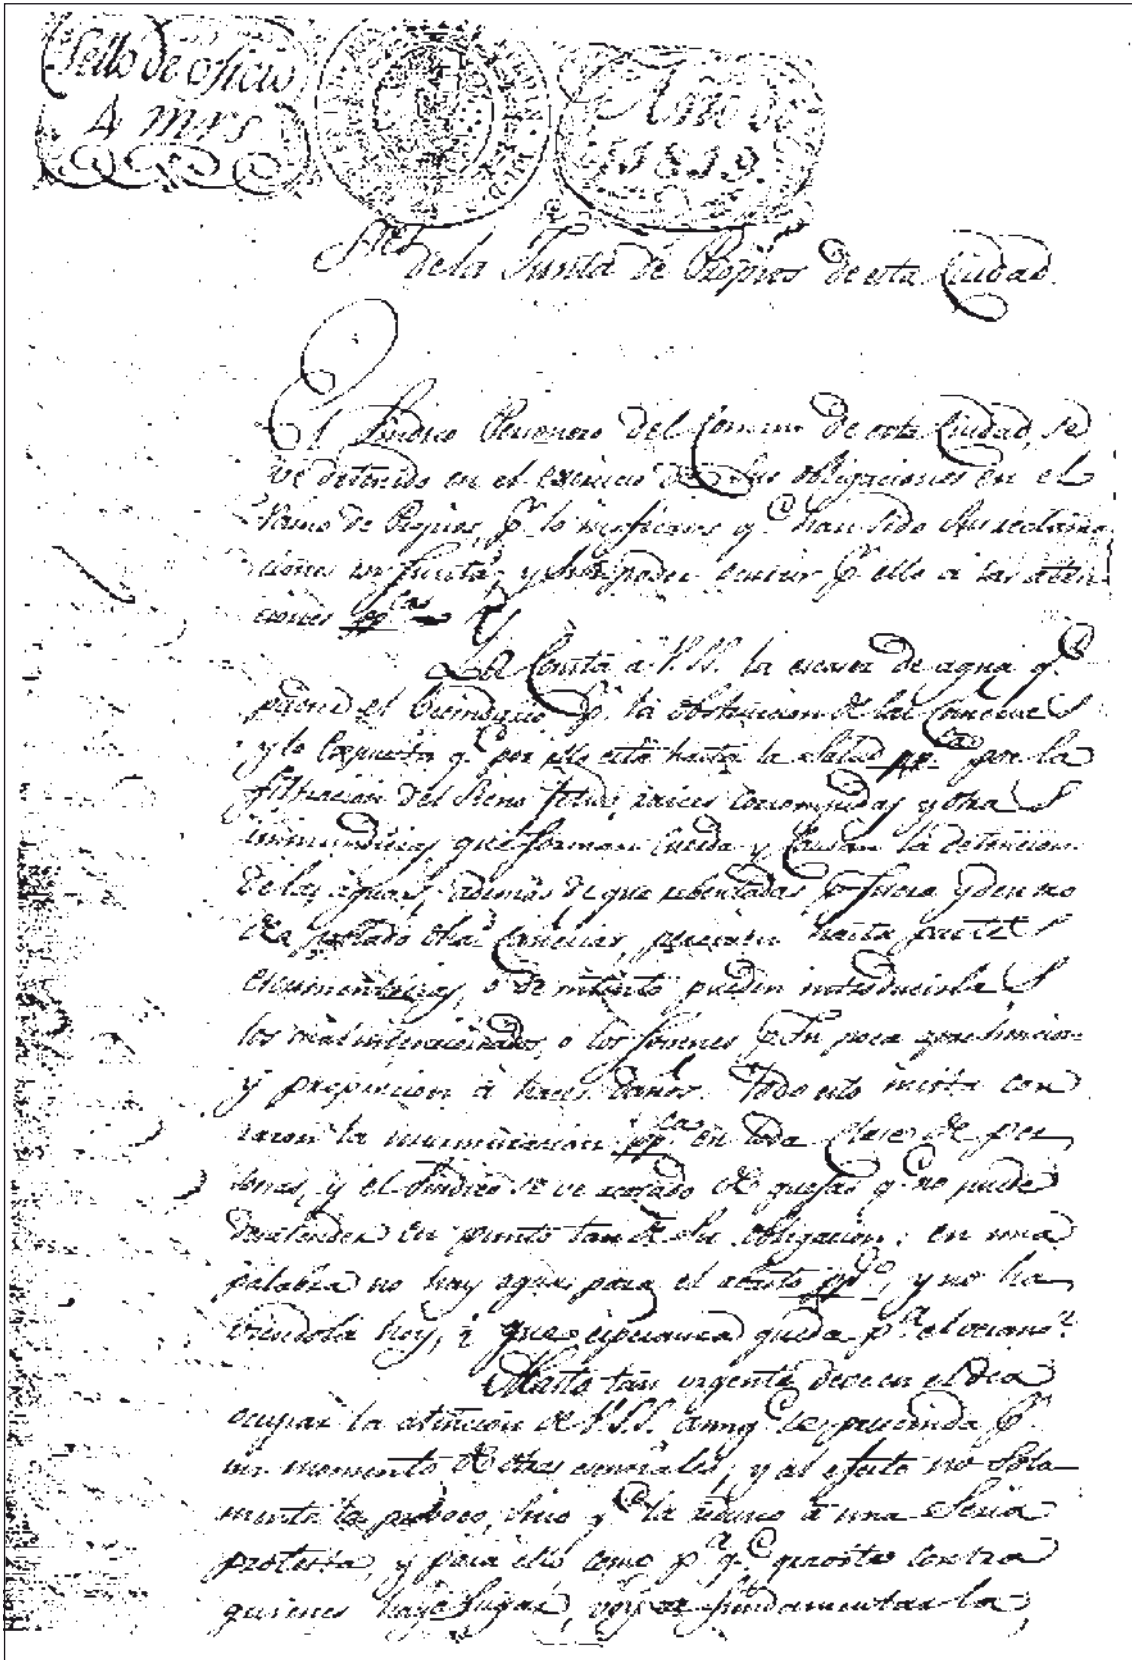 Sello de oficio
4 mrs
Año de
1819.
Sres. de la Junta de Propios de esta Ciudad.
El Sindico Personero del Comun de esta Ciudad, se
ve detenido en el exercicio de sus obligaciones en el
Ramo de Propios, pr. lo ineficaces qe. han sido sus reclama
ciones en Junta, y sin poder ocurrir pr. ello a las aten
ciones ppcas.
Le Consta a V.SS. la escasez de agua qe.
padece el Vecindario pr. la obstruccion de las Cañerias
y lo Expuesta qe. por ello está hasta la salud ppca. por la
filtracion del Sieno fetido, raices corrompidas y otras
inmundicias que forman rueda y Causan la detencion
de las aguas, ademas de que rebentadas pr. fuera y dentro
de poblado otras Cañerias, perciben hasta partes
excrementicias, o de intento pueden introducirlas
los mal intencionados, o los Jovenes pr. su poca aprehencion
y propension à hacer daños. Todo esto incita con
razon la murmuracion ppca. en toda Clase de per
sonas, y el Sindico se ve acosado de quejas qe. no puede
desatender en punto tan de su obligacion: en una
palabra no hay agua para el abasto ppco., y no ha
biendola hoy, ¿ que esperanza queda pa. el verano?
tan urgente deve en el dia
ocupar la atencion de V.SS. aunqe. se prescinda pr.
un momento de otras esenciales, y al efecto no sola
mente la proboco, sino qe. la reduzco à una seria
protesta, y para ello como pa. qe. gravite contra
quienes haya lugar, voy a fundamentarla,